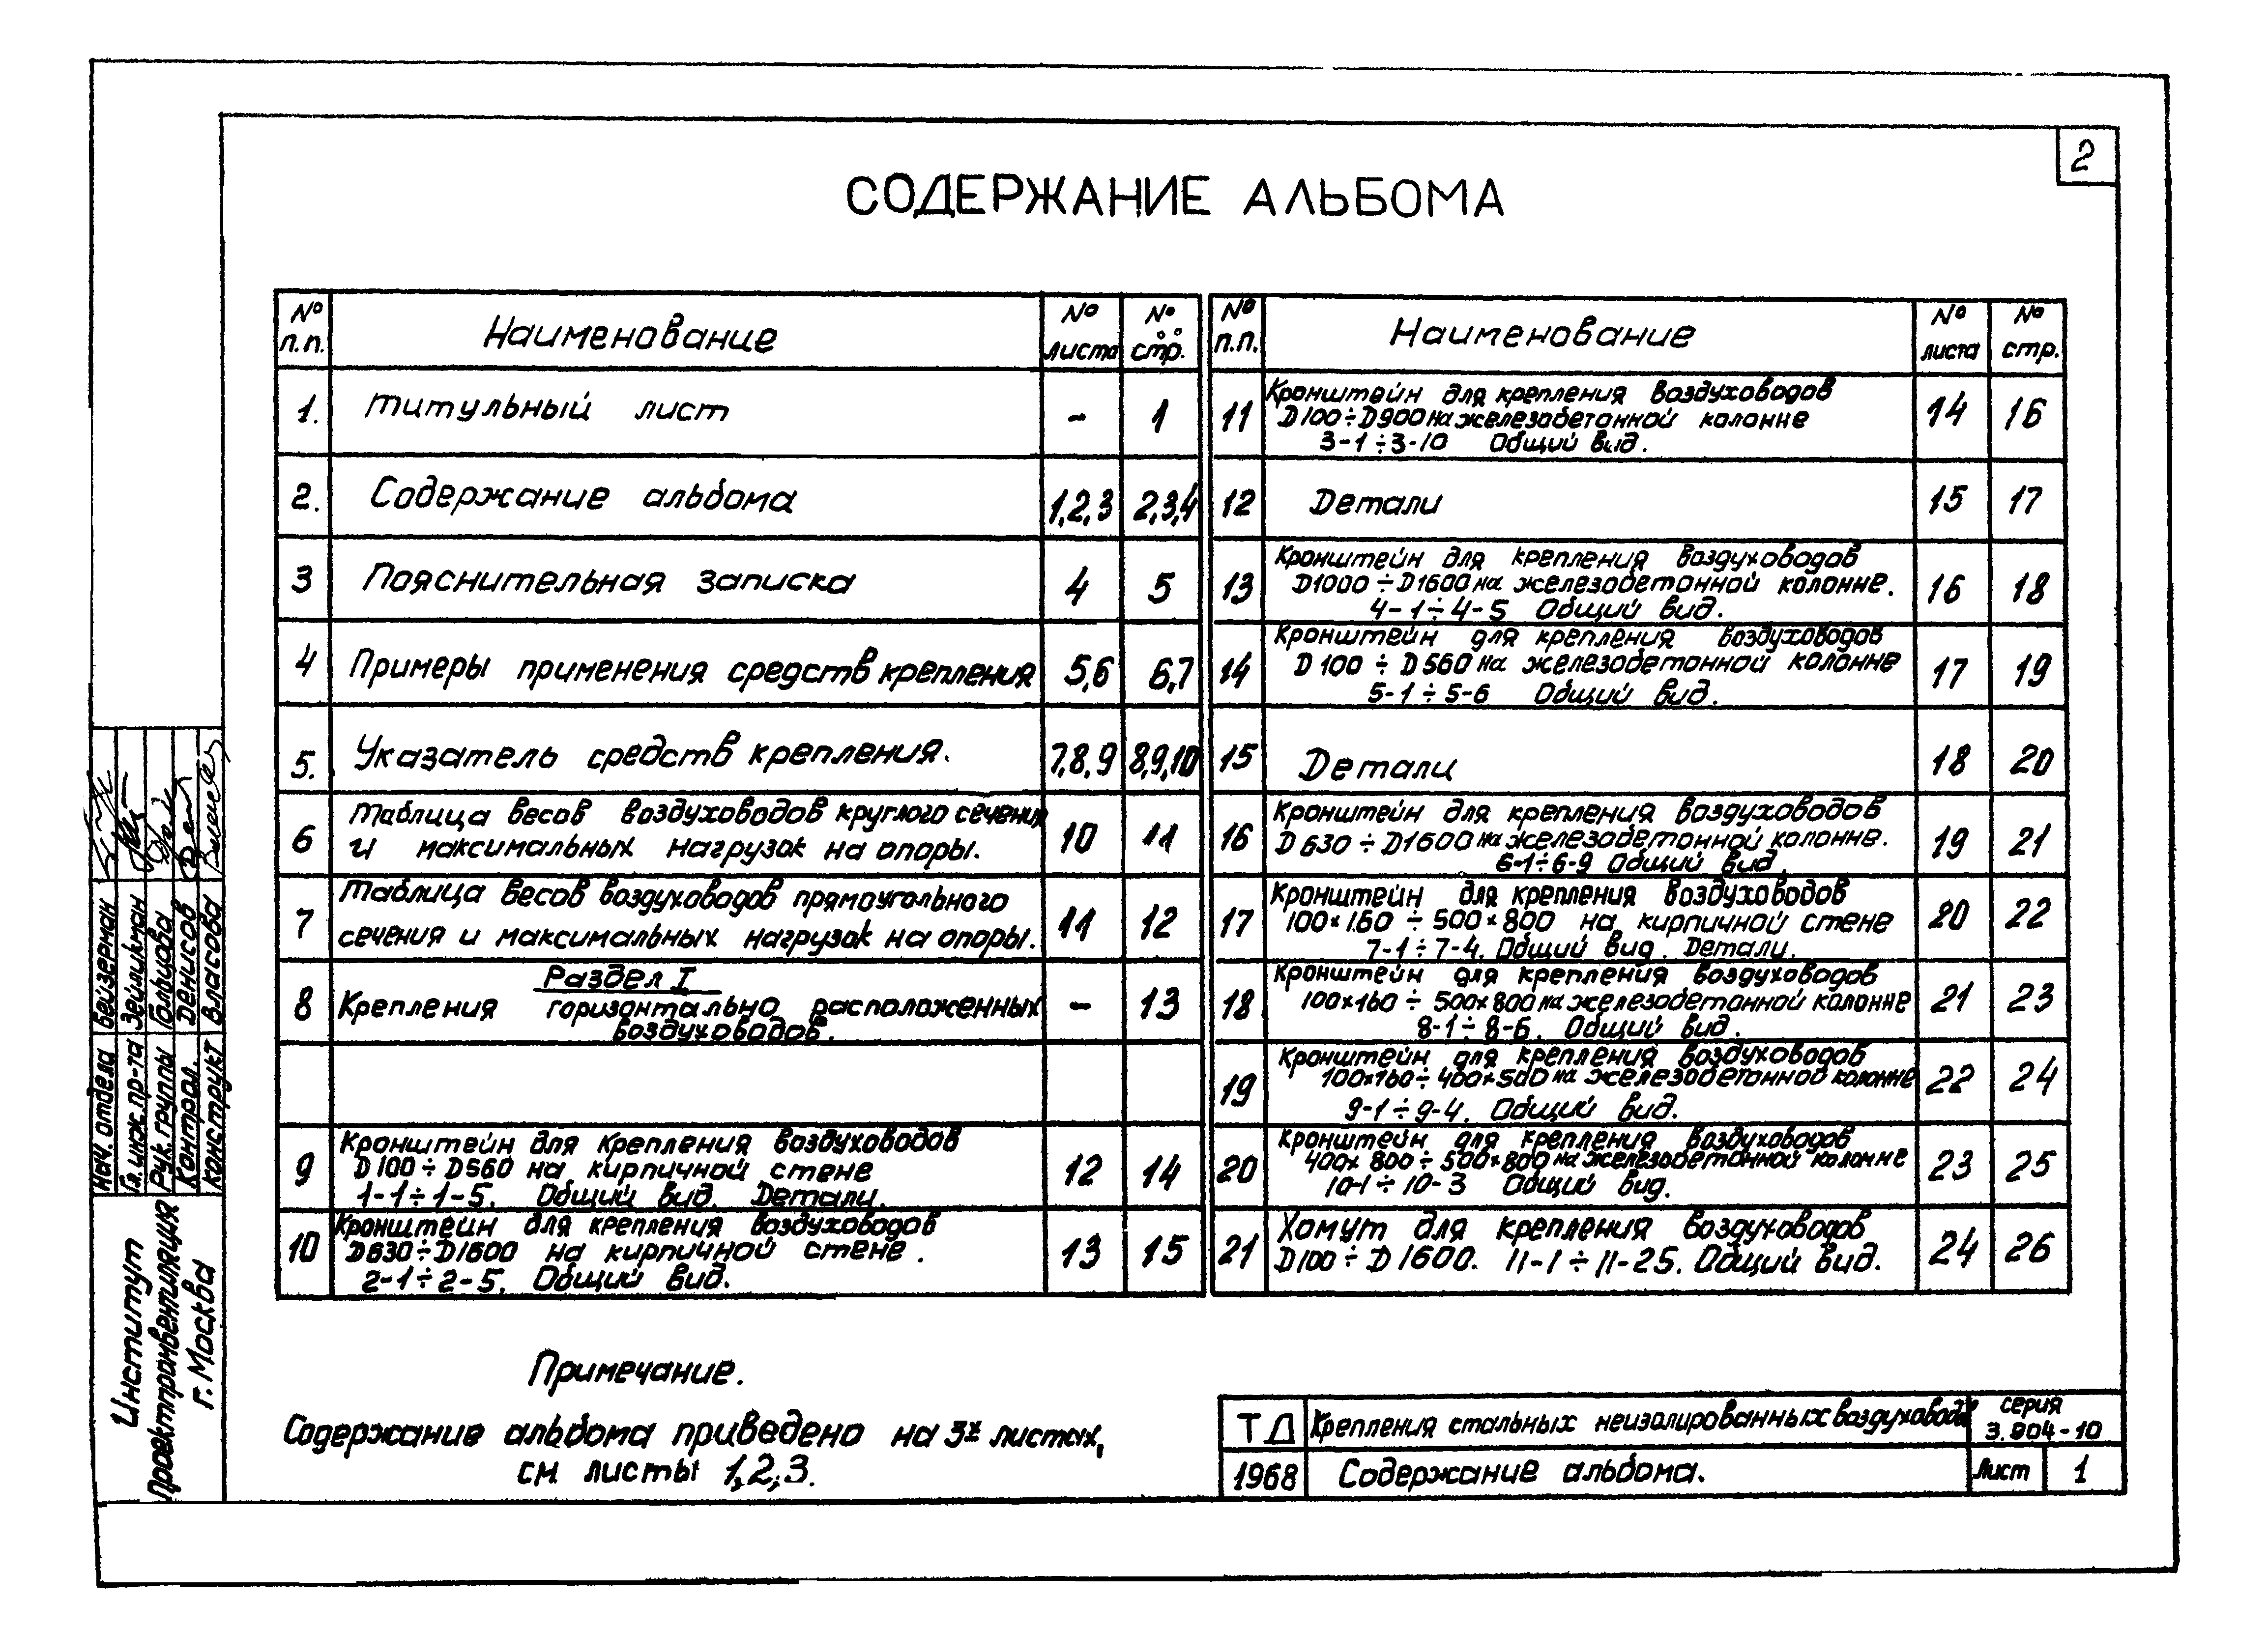 2
СОДЕРЖАНИЕ АЛЬБОМА
№ п.п. Наименование № листа №№ стр.
1. Титульный лист - 1
2. Содержание альбома 1,2,3 2,3,4
3 Пояснительная записка 4 5
4 Примеры применения средств крепления 5,6 6,7
5. Указатель средств крепления. 7,8,9 8,9,10
6 Таблица весов воздуховодов круглого сечения
и максимальных нагрузок на опоры. 10 11
7 Таблица весов воздуховодов прямоугольного
сечения и максимальных нагрузок на опоры. 11 12
Раздел I
8 Крепления горизонтально расположенных - 13
воздуховодов.
Кронштейн для крепления воздуховодов
9 D100÷D560 на кирпичной стене 12 14
1-1÷1-5. Общий вид. Детали.
Кронштейн для крепления воздуховодов
10 D630÷D1600 на кирпичной стене. 13 15
2-1÷2-5. Общий вид.
№ п.п. Наименование № листа № стр.
Кронштейн для крепления воздуховодов
11 D100÷D900 на железобетонной колонне 14 16
3-1÷3-10 Общий вид.
12 Детали 15 17
Кронштейн для крепления воздуховодов
13 D1000÷D1600 на железобетонной колонне. 16 18
4-1÷4-5 Общий вид.
Кронштейн для крепления воздуховодов
14 D100÷D560 на железобетонной колонне 17 19
5-1÷5-6 Общий вид.
15 Детали 18 20
Кронштейн для крепления воздуховодов
16 D630÷D1600 на железобетонной колонне. 19 21
6-1÷6-9 Общий вид.
Кронштейн для крепления воздуховодов
17 100×160÷500×800 на кирпичной стене 20 22
7-1÷7-4. Общий вид. Детали.
Кронштейн для крепления воздуховодов
18 100×160÷500×800 на железобетонной колонне 21 23
8-1÷8-6. Общий вид.
Кронштейн для крепления воздуховодов
19 100×160÷400×500 на железобетонной колонне 22 24
9-1÷9-4. Общий вид.
Кронштейн для крепления воздуховодов
20 400×800÷500×800 на железобетонной колонне 23 25
10-1÷10-3 Общий вид.
Хомут для крепления воздуховодов
21 D100÷D1600. 11-1÷11-25. Общий вид. 24 26
Примечание.
Содержание альбома приведено на 3х листах,
см листы 1,2,3.
ТД Крепления стальных неизолированных воздуховодов серия 3.904-10
1968 Содержание альбома. Лист 1
Нач. отдела Бейзерман
Гл. инж. пр-та Зейликман
Рук. группы
Контрол. Денисов
Конструкт Власова
Институт
Проектпромвентиляция
г. Москва